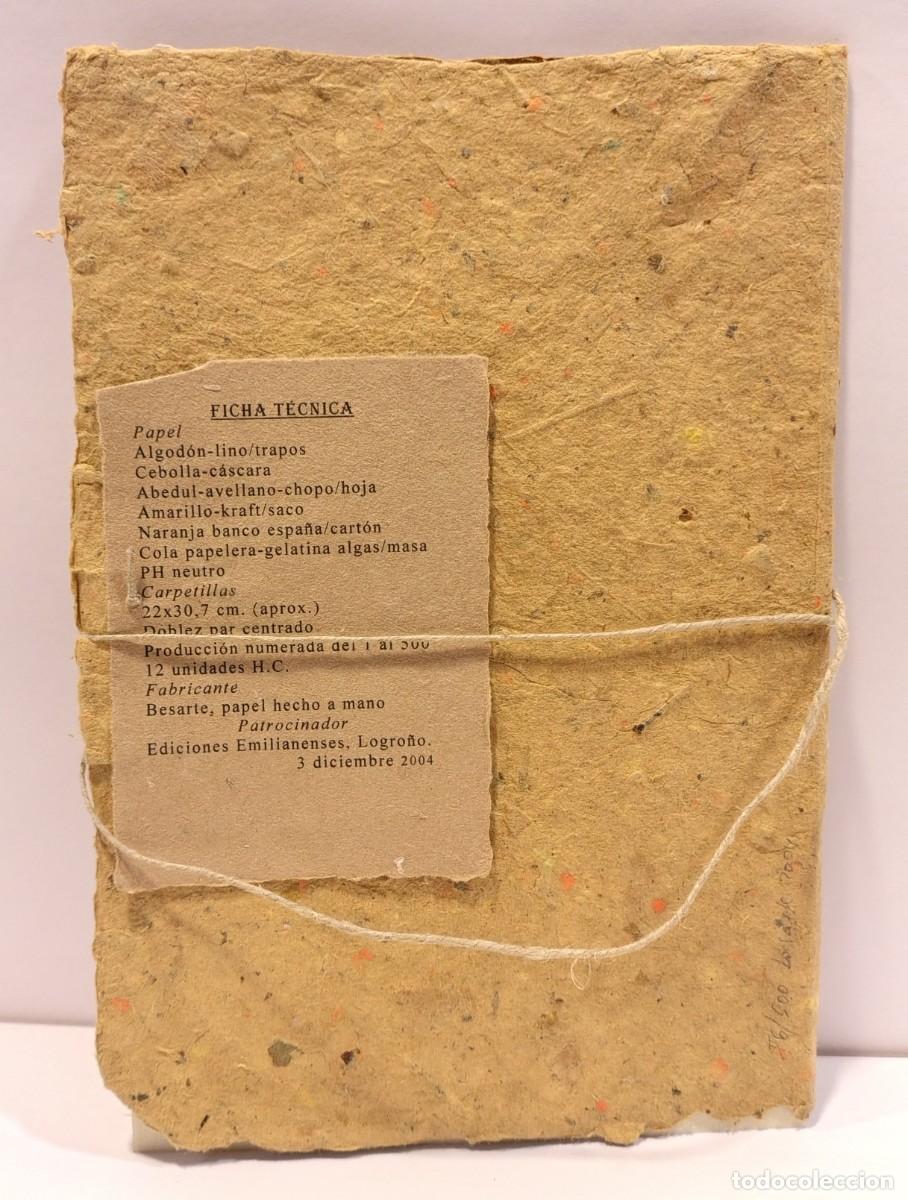 FICHA TÉCNICA
Papel
Algodón-lino/trapos
Cebolla-cáscara
Abedul-avellano-chopo/hoja
Amarillo-kraft/saco
Naranja banco españa/cartón
Cola papelera-gelatina algas/masa
PH neutro
Carpetillas
22x30,7 cm. (aprox.)
Doblez par centrado
Producción numerada del 1 al 500
12 unidades H.C.
Fabricante
Besarte, papel hecho a mano
Patrocinador
Ediciones Emilianenses, Logroño.
3 diciembre 2004
/500
todocoleccion